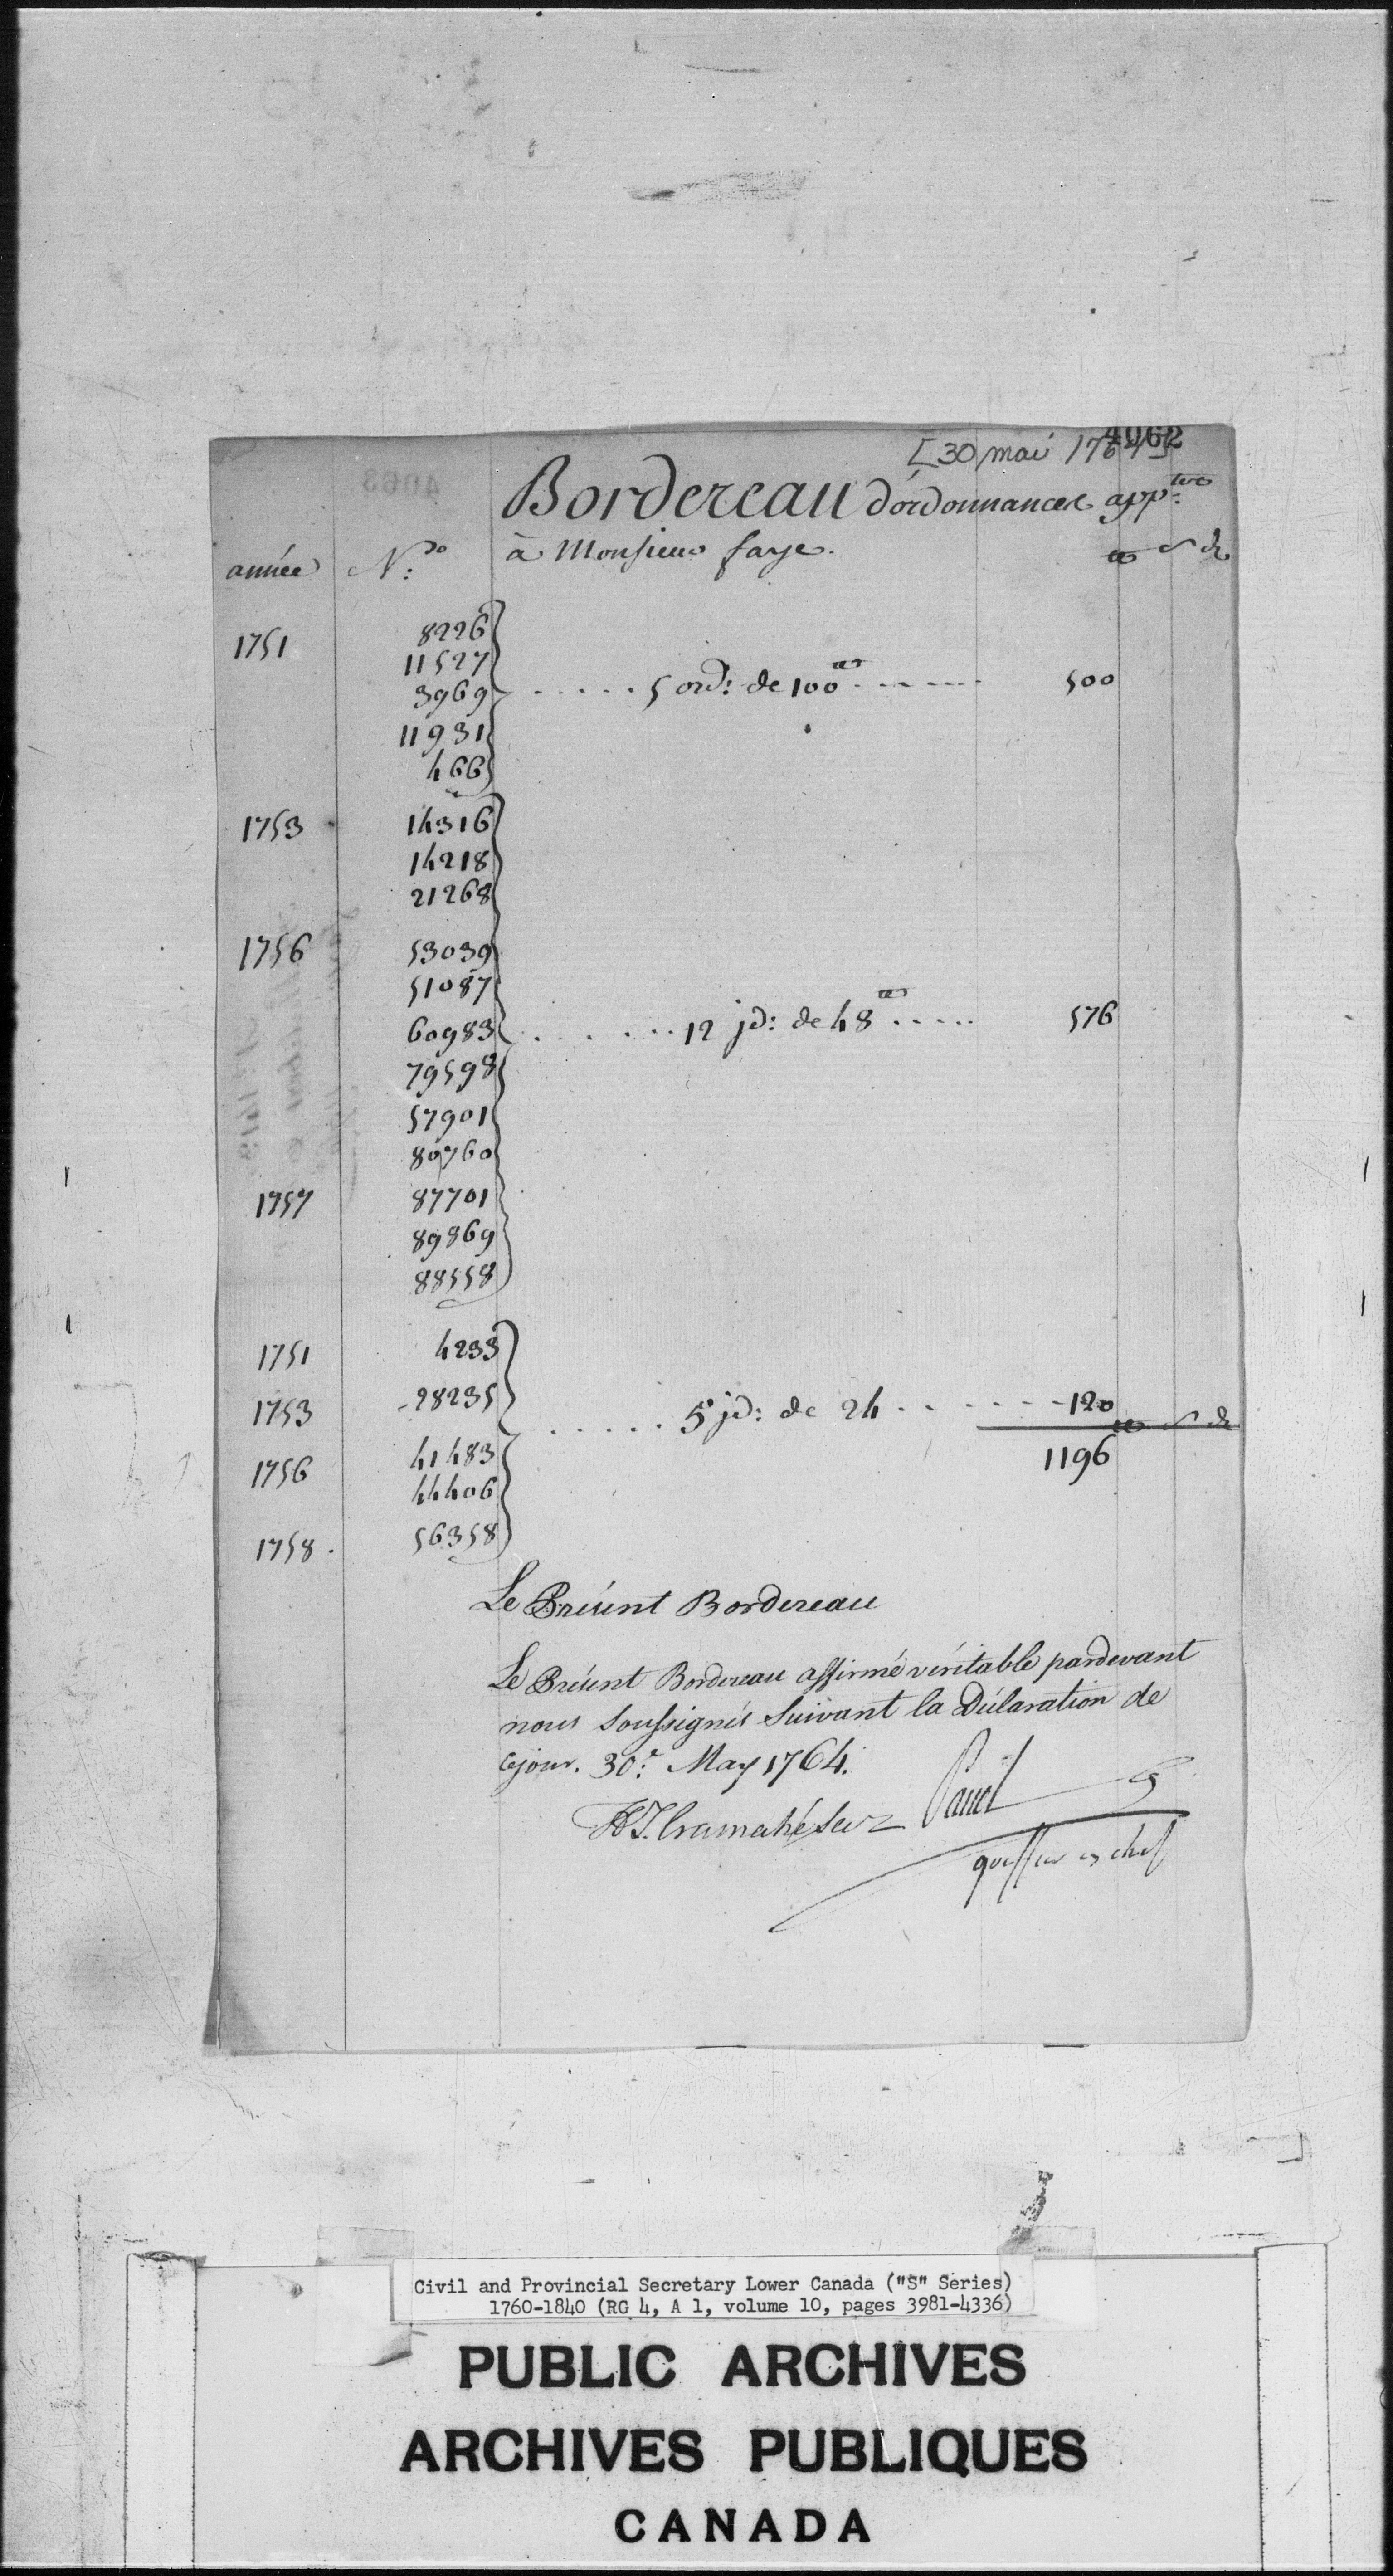 4062
[30 mai 1764]
Bordereau d'ordonnances app.tes
à Monsieur faye.
année N.o ₶ s d
1751 8226
11527
3969 5 ord: de 100₶ 500
11931
466
1753 14316
14218
21268
1756 53039
51087
60983 12 jd: de 48₶ 576
79598
57901
80760
1757 87701
89869
88558
1751 4233
1753 28235
5 jd: de 24 120
₶ s d
1756 41483 1196
44406
1758. 56358
Le Présent Bordereau
Le Présent Bordereau affirmé véritable pardevant
nous soussignés suivant la Déclaration de
cejour. 30.e May 1764.
H T. Cramahé Secr Panet
greffier en chef
Civil and Provincial Secretary Lower Canada ("S" Series)
1760-1840 (RG 4, A 1, volume 10, pages 3981-4336)
PUBLIC ARCHIVES
ARCHIVES PUBLIQUES
CANADA